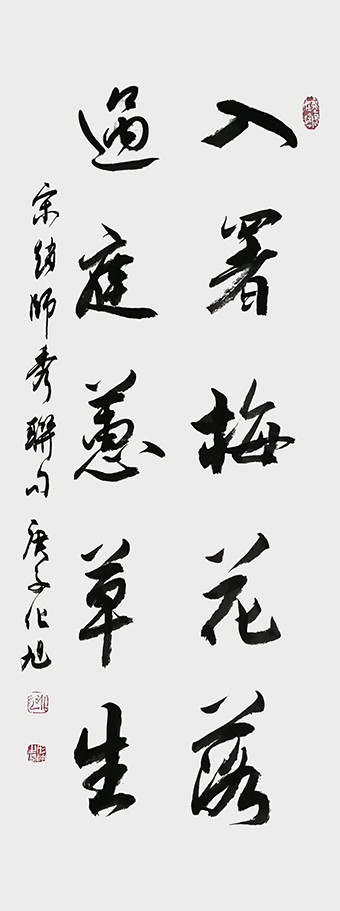 入署梅花落
過庭蕙草生
宋趙師秀聯句 庚子作旭